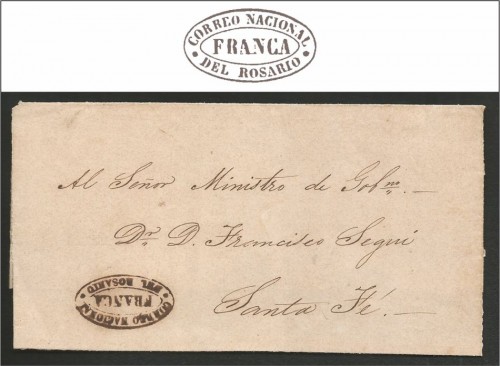 CORREO NACIONAL
FRANCA
DEL ROSARIO
Al Señor Ministro de Gobno.
Dr. D. Francisco Seguí
Santa Fé.
CORREO NACIONAL
FRANCA
DEL ROSARIO